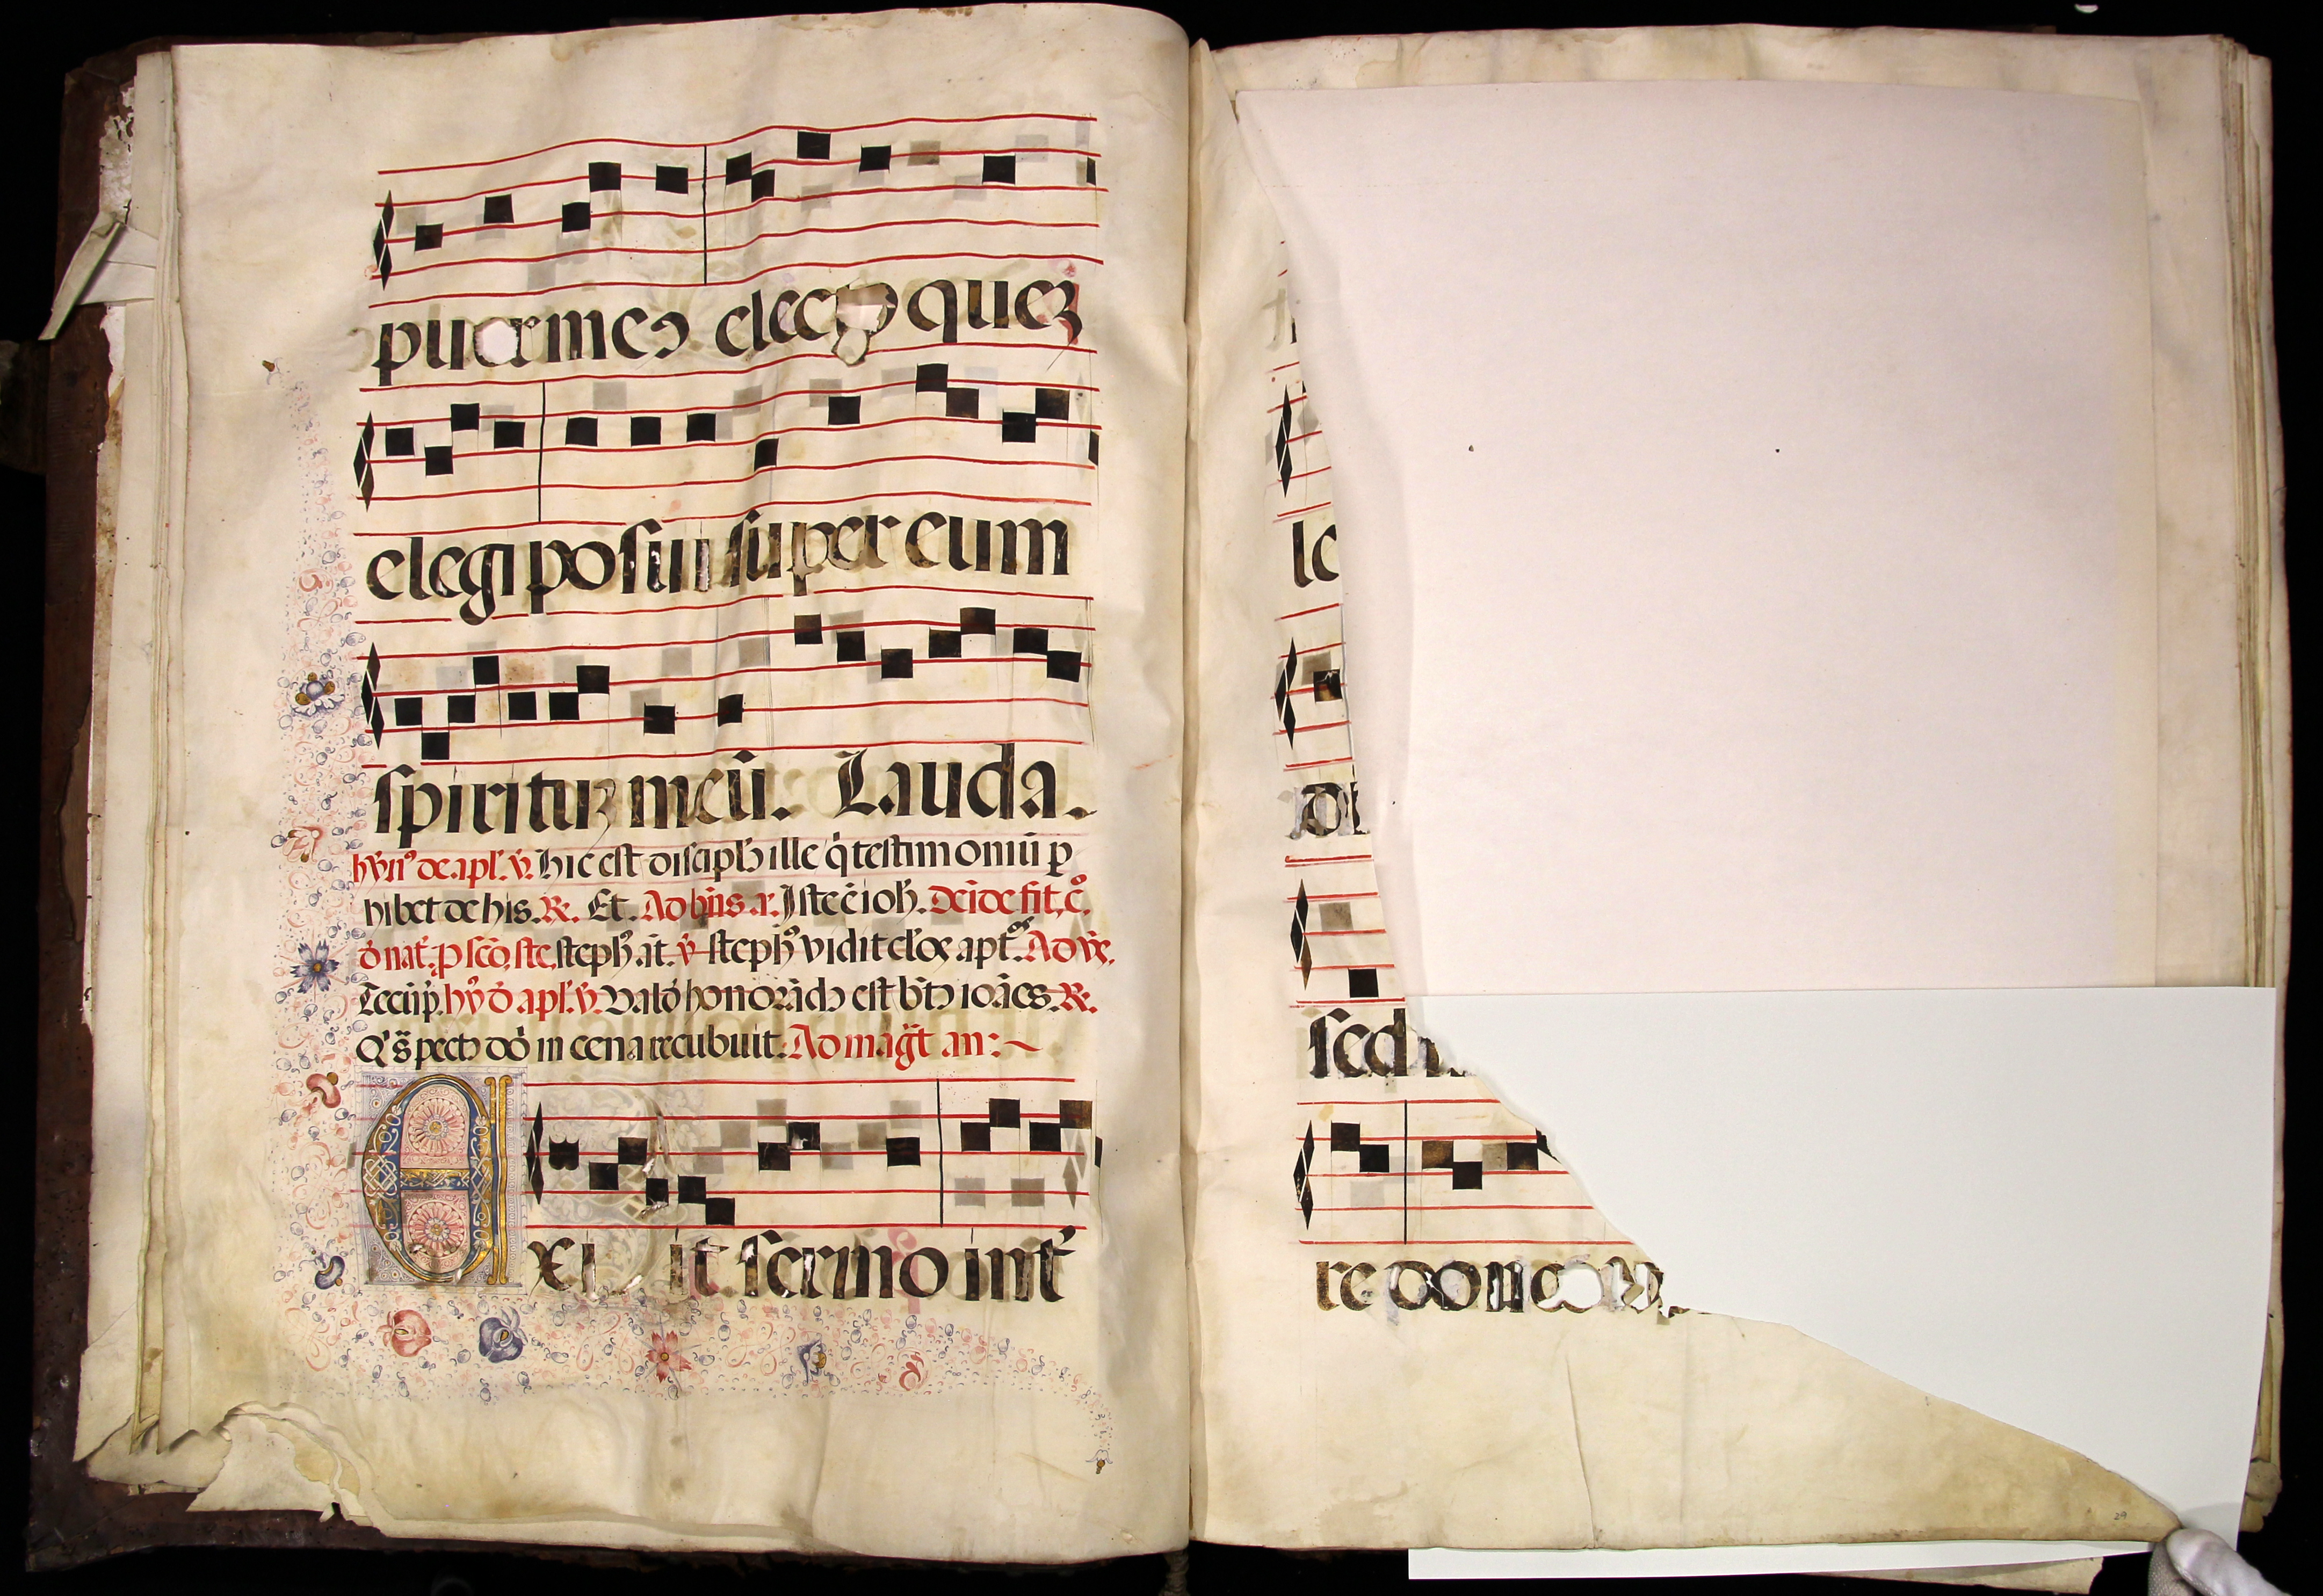 puer meus electus quez
elegi posui super eum
spirituz meū. Lauda.
hȳn⁹ de.apl'.v̄. hic est discipl⁹ ille q̇ testimoniū p
hibet de his. ℟. Et. Ad bn̄s.a. Iste ē ioh̄. Deīde fit.c̄.
d̄ nat̄. p scō. ste. steph⁹.āt. v̄ steph⁹ vidit cel'os apt̄os. Ad vs̄.
Tecūp. hȳ d̄ apl'.v̄. Valđ honorād⁹ est bt̄⁹ ioāes. ℟.
Q' s̄ pect⁹ dō in cena recubuit. Ad magt̄ an:~
Exi it sermo int̄
lo
di
sed
re donec
29